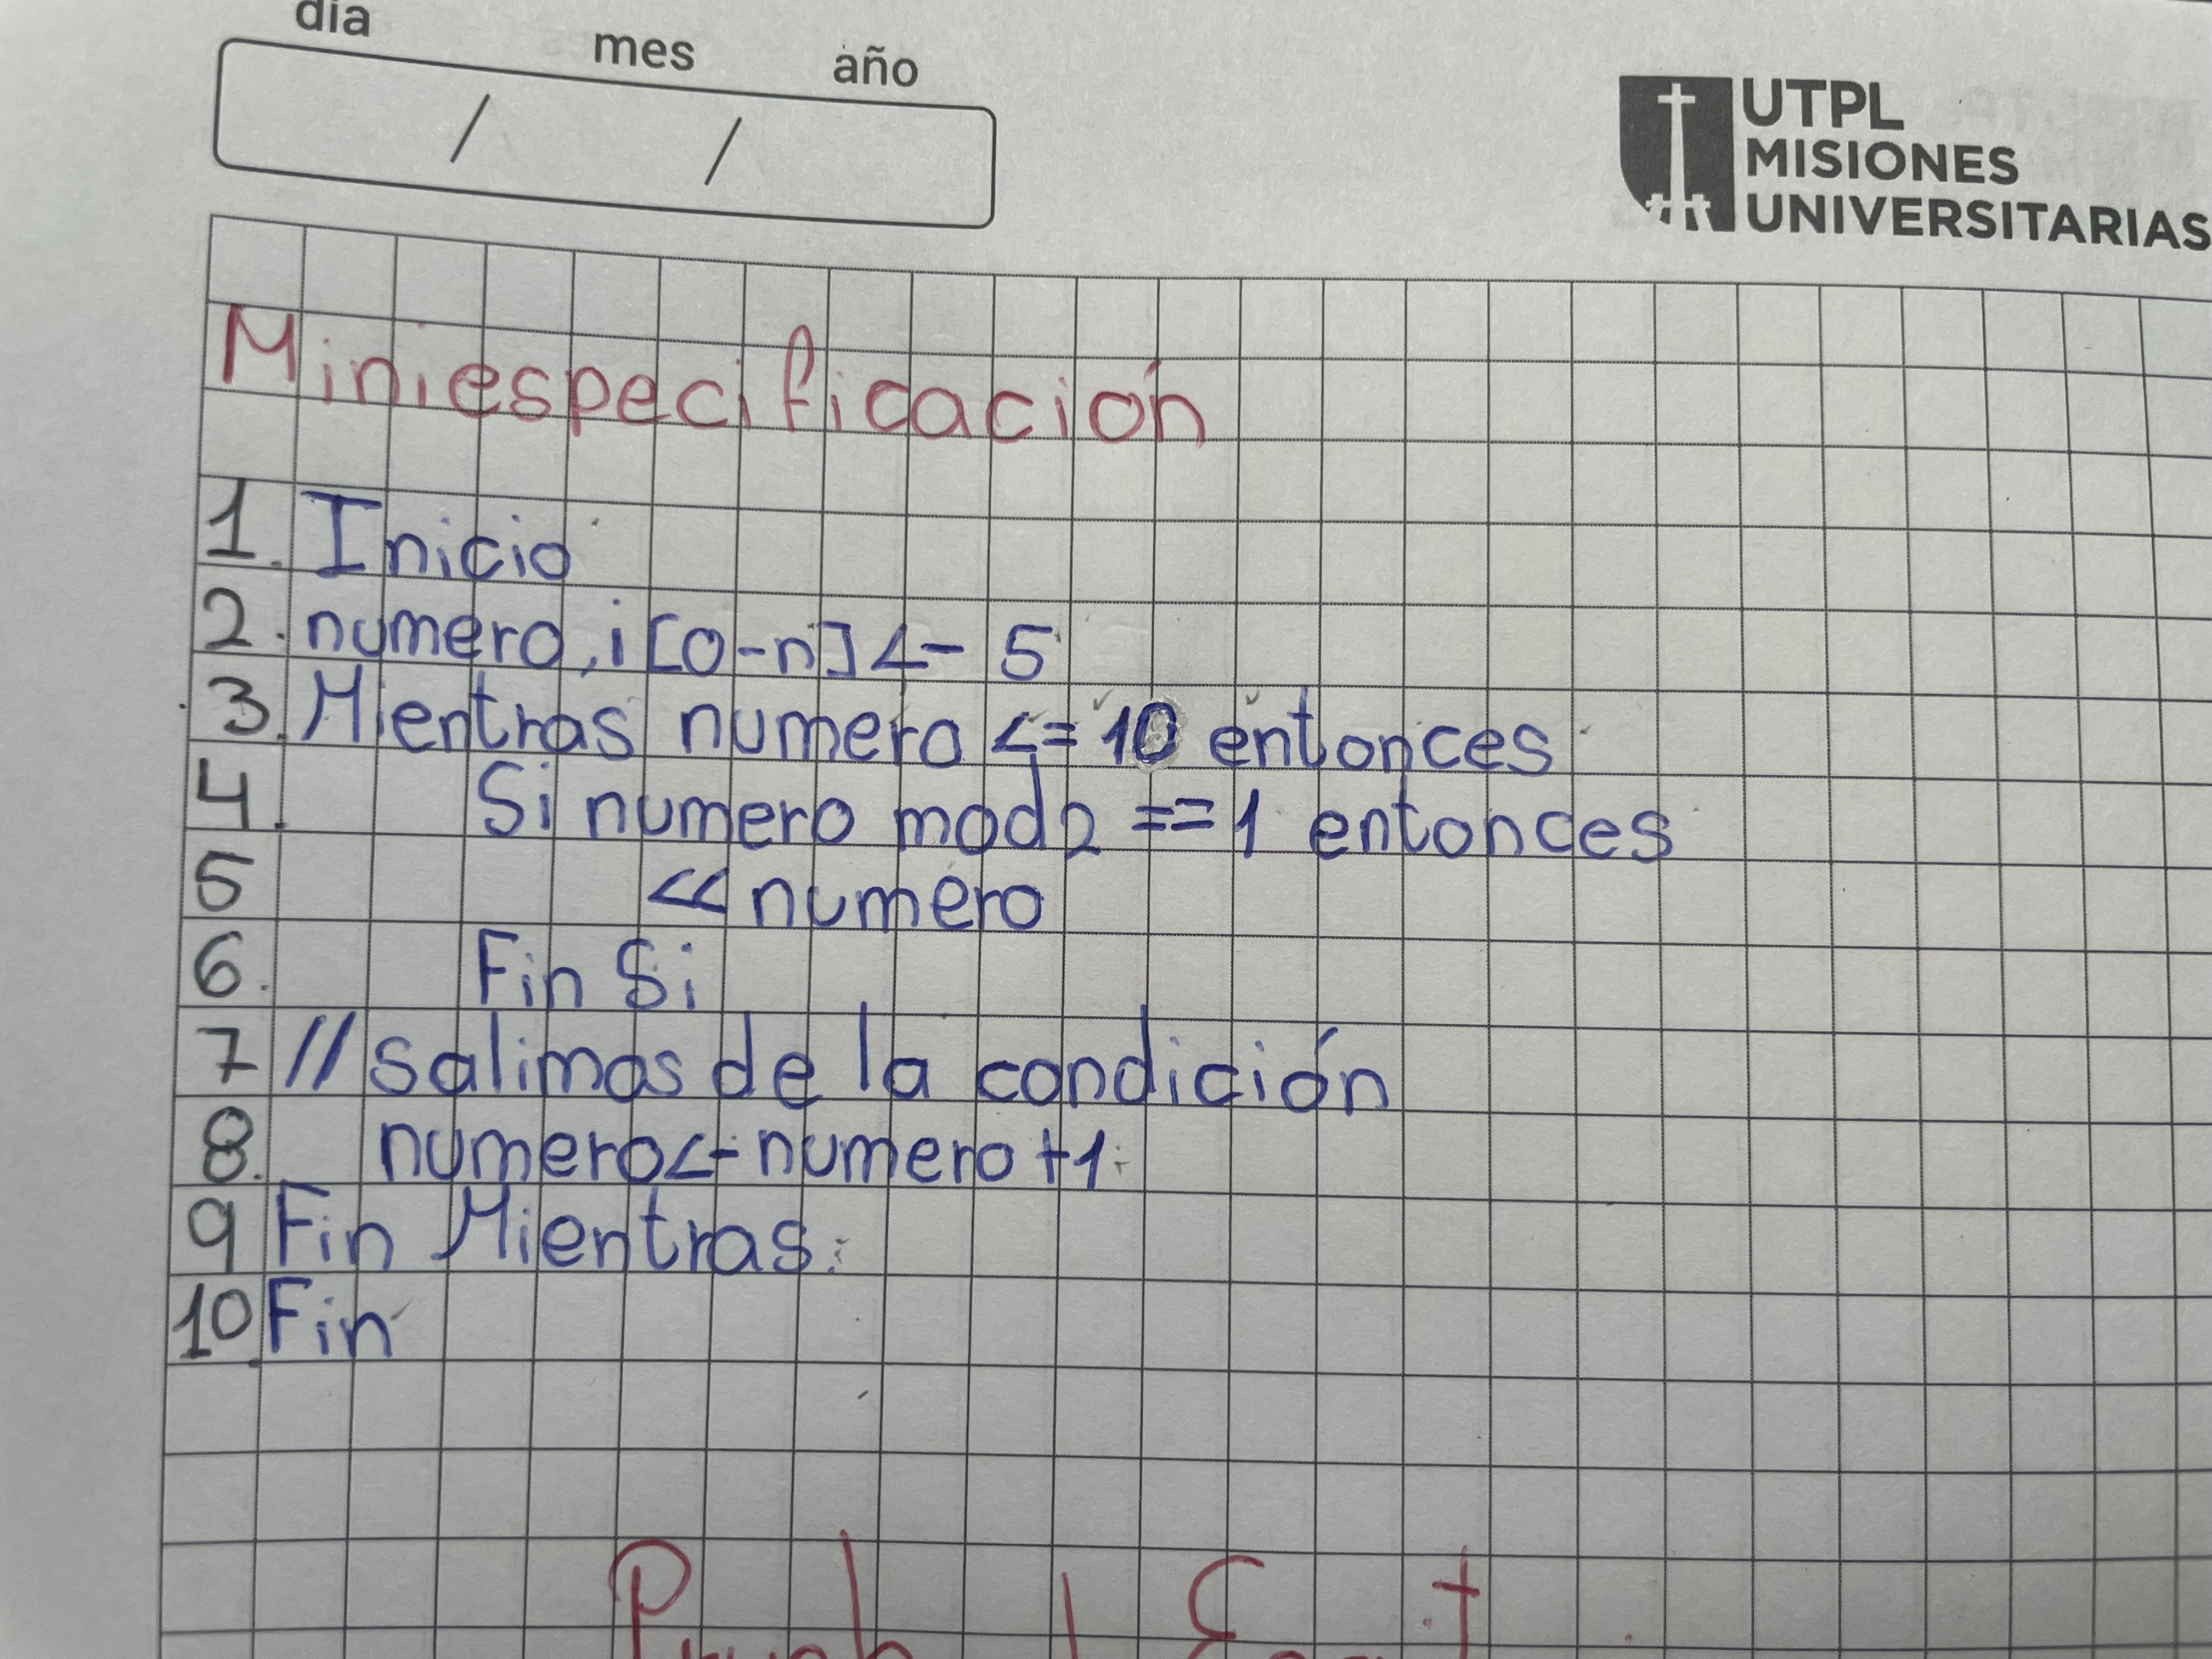 día mes año
/ /
UTPL
MISIONES
UNIVERSITARIAS
Miniespecificación
1. Inicio
2. numero, i [0-n] <- 5
3. Mientras numero <= 10 entonces
4. Si numero mod 2 == 1 entonces
5 << numero
6. Fin Si
7 // salimos de la condición
8. numero <- numero + 1
9 Fin Mientras
10. Fin